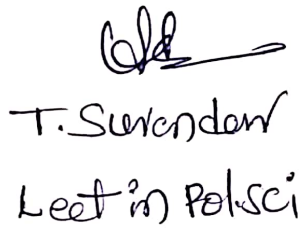 T. Surendar
Lect in Pol.sci